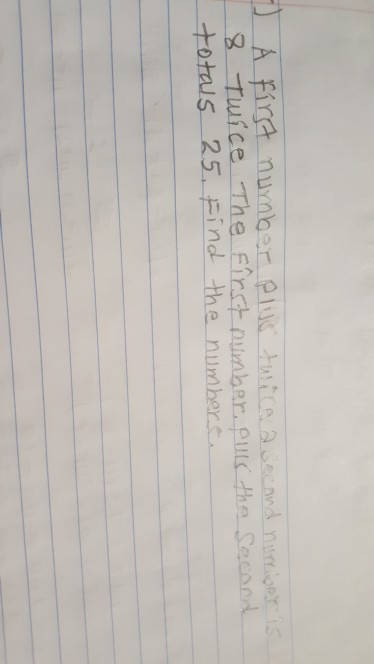 ) A first number plus twice a second number is
8 Twice The First number. plus the Second
totals 25. Find the numbers.